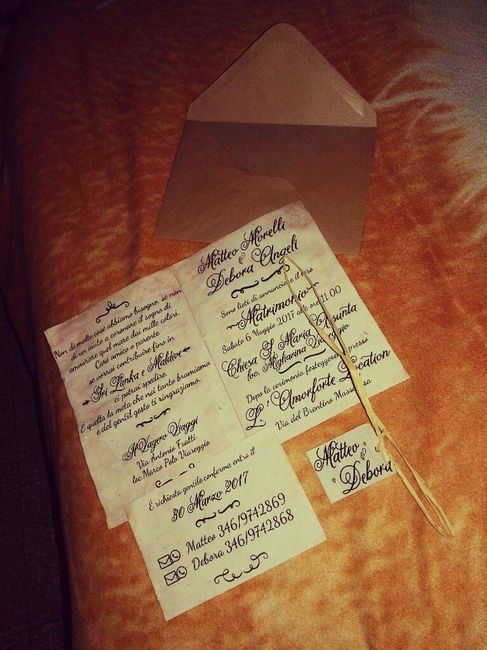 Matteo Morelli
&
Debora Angeli
Sono lieti di annunciare il loro
Matrimonio
Sabato 6 Maggio 2017 ore 11.00
Chiesa S. Maria Assunta
loc. Migliarina Viareggio
Dopo la cerimonia festeggeremo presso
L' Amorforte Location
Via del Brentino Massarosa
Non di molte cose abbiamo bisogno, se non
di un aiuto a coronare il sogno di
ammirare quel mare dai mille colori.
Caro amico o parente
se vorrai contribuire fino in
Sri Lanka e Maldive
ci potrai spedire.
È quella la meta che noi tanto bramiamo
e del gentil gesto ti ringraziamo.
Il Vagero Viaggi
Via Antonio Fratti
loc. Marco Polo Viareggio
È richiesta gentile conferma entro il
30 Marzo 2017
Matteo 346/9742869
Debora 346/9742868
Matteo
&
Debora